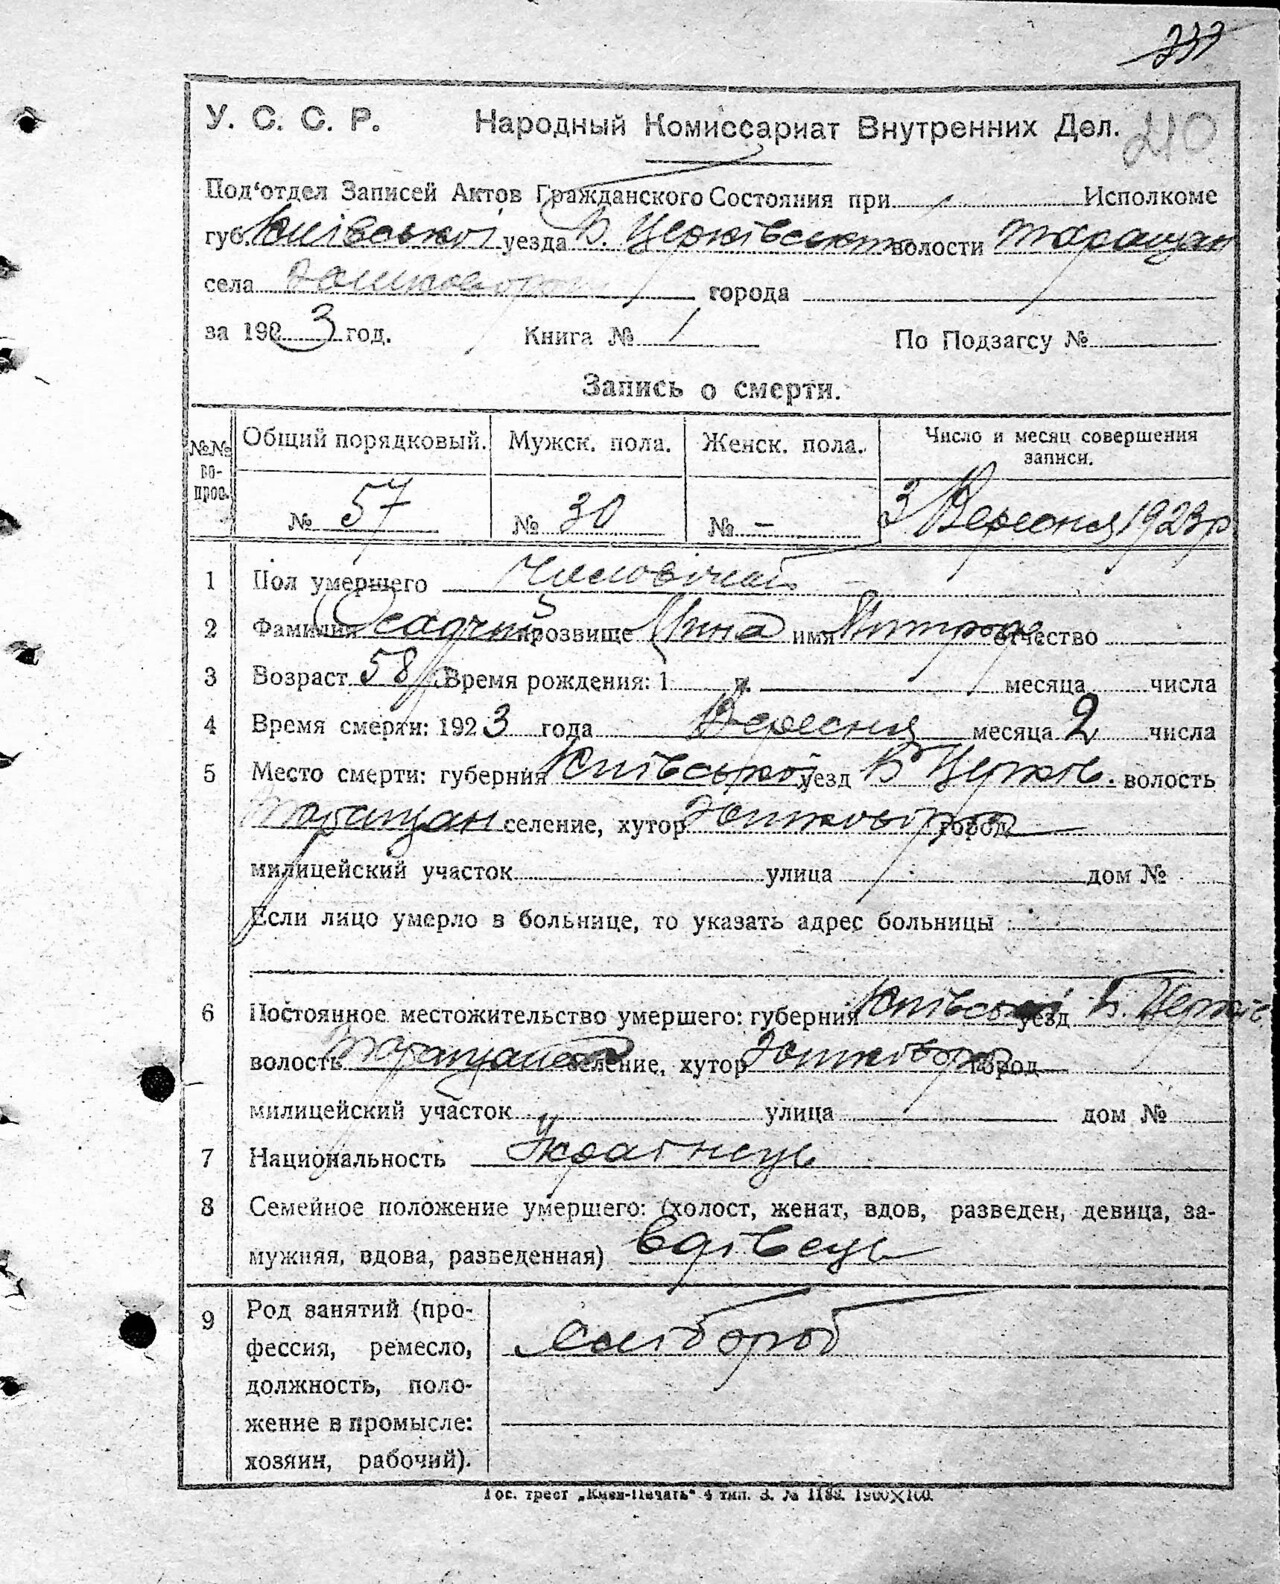 237
У. С. С. Р. Народный Комиссариат Внутренних Дел. 210
Под'отдел Записей Актов Гражданского Состояния при Исполкоме
губ. Київської уезда Б. Церківської волости Таращан
села города
за 1923 год. Книга № 1 По Подзагсу №
Запись о смерти.
№№ во- прос. Общий порядковый. Мужск. пола. Женск. пола. Число и месяц совершения записи.
№ 57 № 30 № - 3 Вересня 1923 р
1 Пол умершего Чоловічий
2 Фамилия Осадчий прозвище Мина имя Митроф отчество
3 Возраст 58 р. Время рождения: 1 г. месяца числа
4 Время смерти: 1923 года Вересня месяца 2 числа
5 Место смерти: губерния Київської уезд Б Церків. волость
Таращан селение, хутор город
милицейский участок улица дом №
Если лицо умерло в больнице, то указать адрес больницы :
6 Постоянное местожительство умершего: губерния Київської уезд Б. Церків
волость селение, хутор город
милицейский участок улица дом №
7 Национальность Українець
8 Семейное положение умершего: (холост, женат, вдов, разведен, девица, за-
мужняя, вдова, разведенная) вдівець
9 Род занятий (про-
фессия, ремесло, хлібороб
должность, поло-
жение в промысле:
хозяин, рабочий).
Гос. трест „Киев-Печать" 4 тип. З. № 1188. 1900×100.